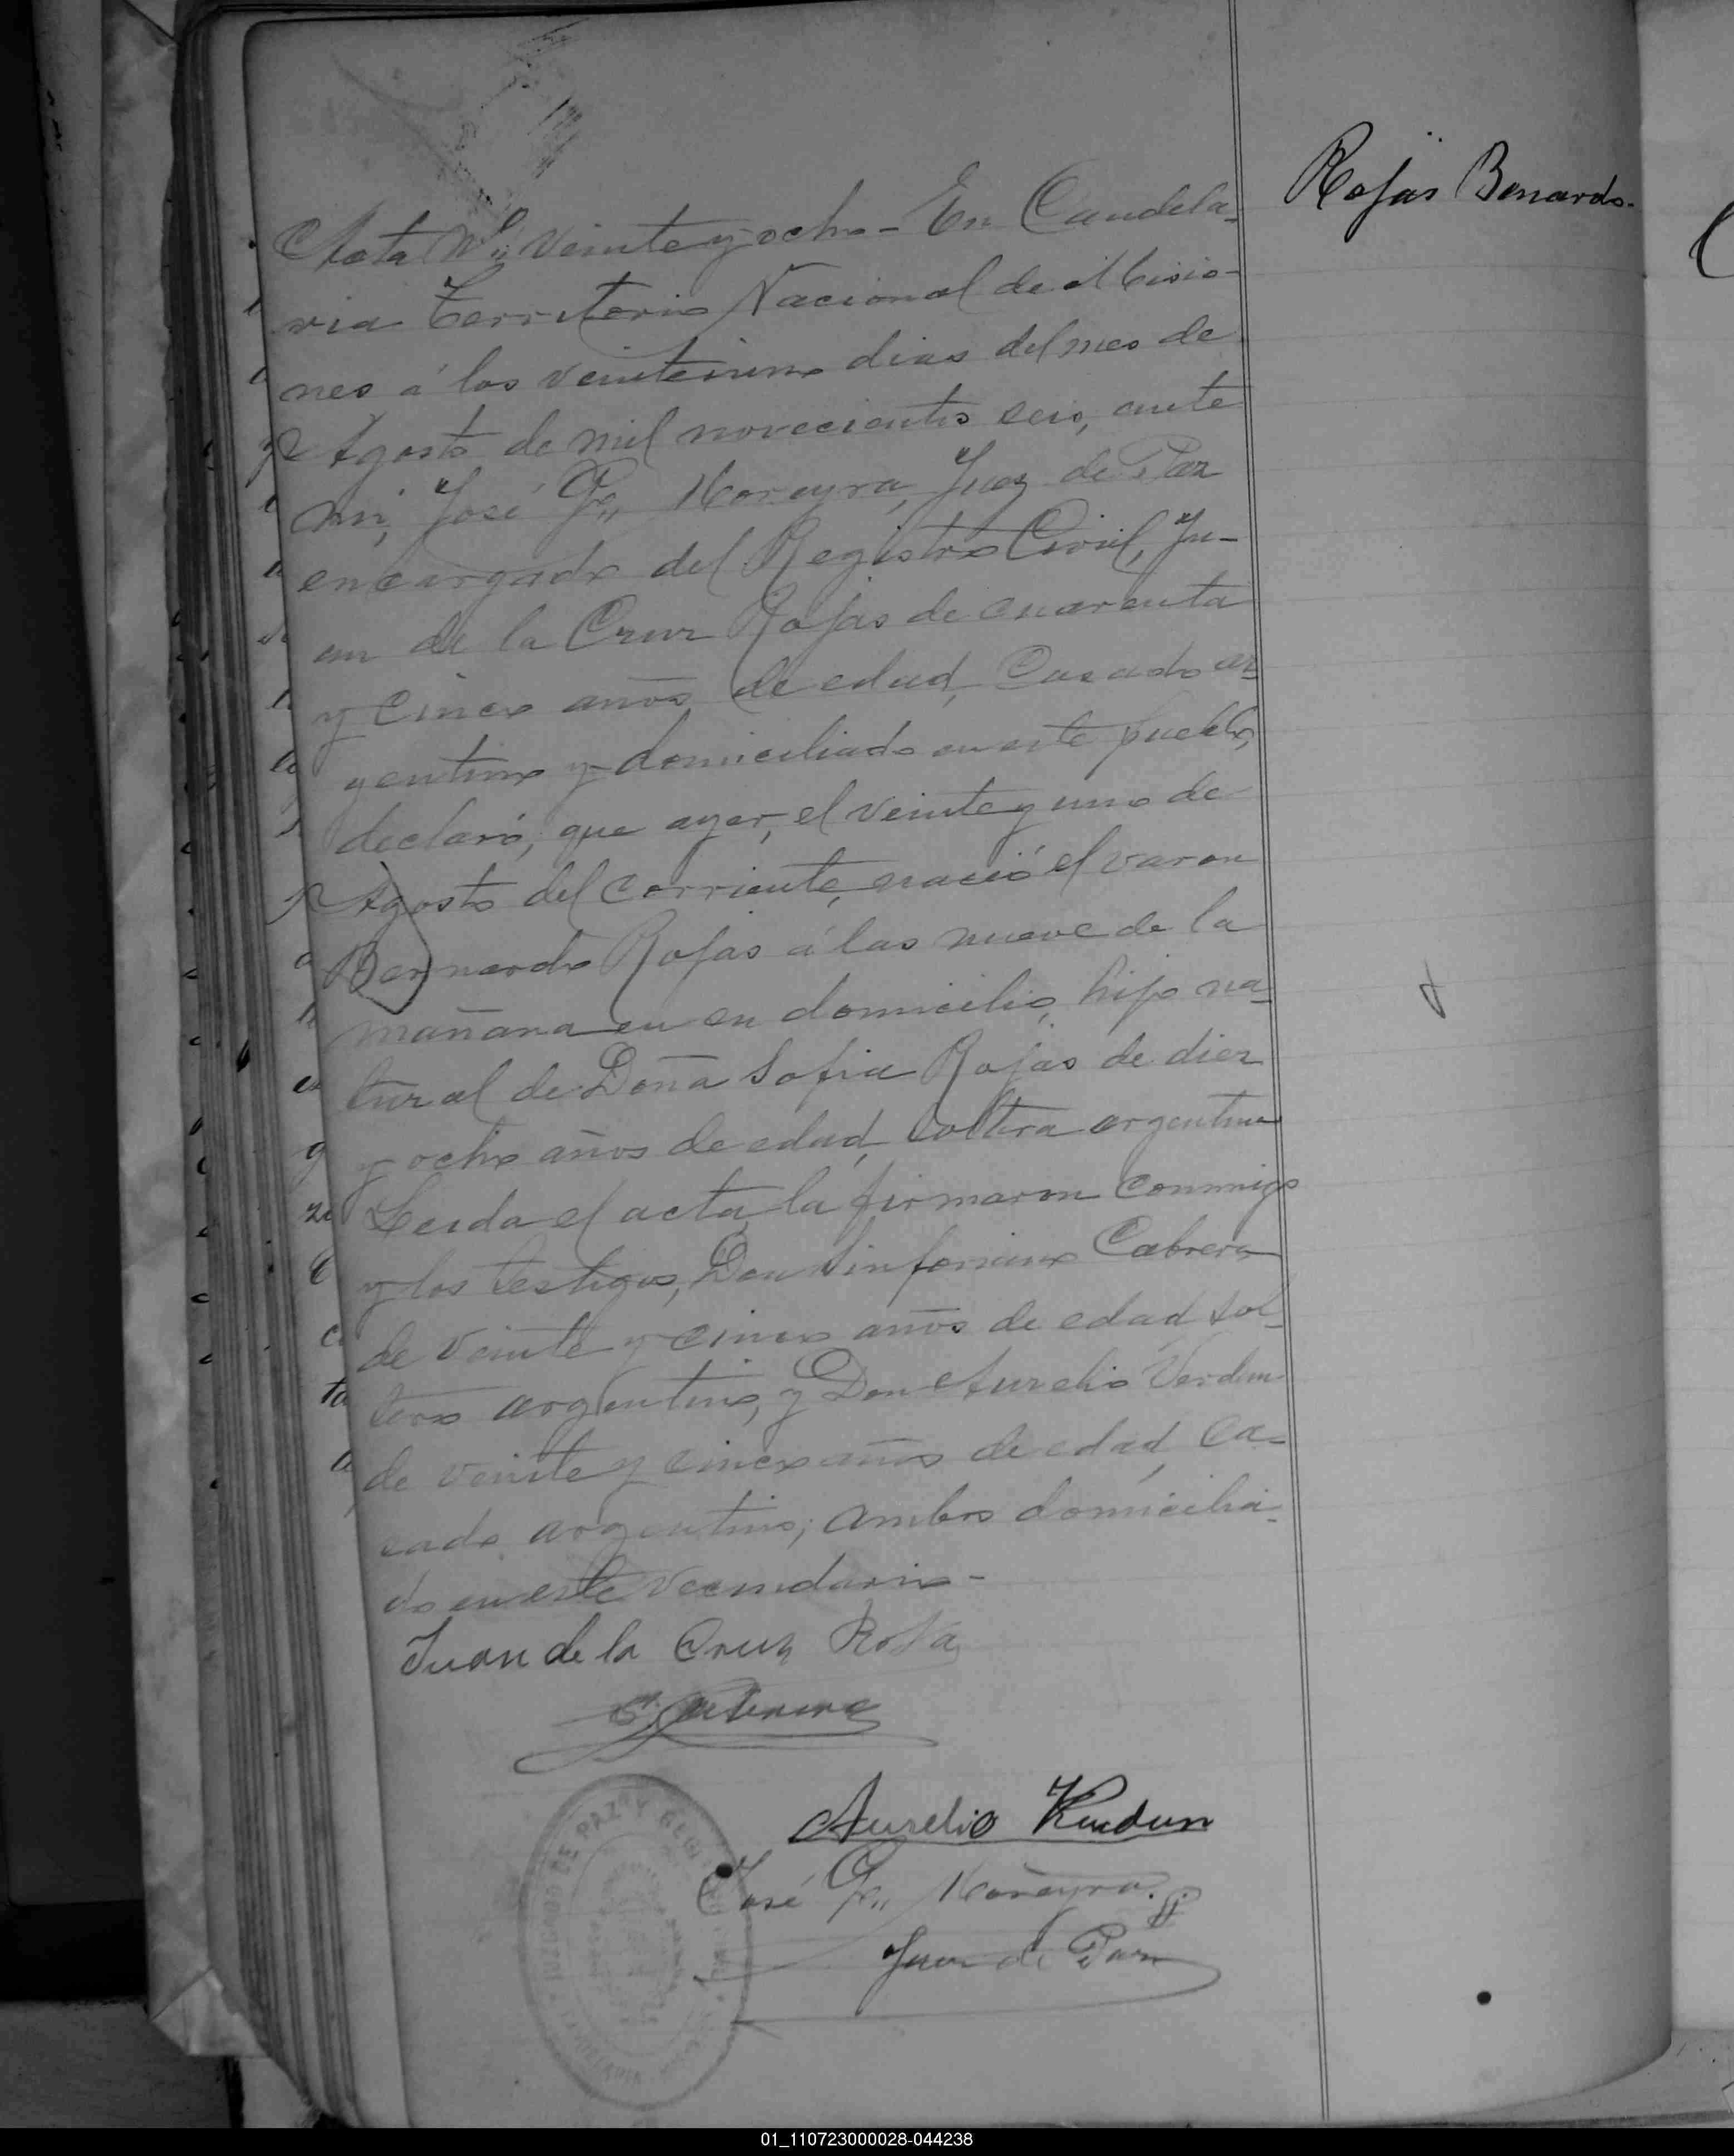 Rojas Bernardo.
Acta Nº veinte y ocho - En Candela-
ria Territorio Nacional de Misio-
nes á los veinteiuno dias del mes de
Agosto de mil novecientos seis, ante
mi, José Moreyra, Juez de Paz
encargado del Registro Civil, Ju-
an de la Cruz Rojas de cuarenta
y cinco años de edad, Casado ar-
gentino y domiciliado en este pueblo,
declaró, que ayer, el veinte y uno de
Agosto del corriente, nació el varon
Bernardo Rojas á las nueve de la
mañana en su domicilio, hijo na-
tural de Doña Sofia Rojas de diez
y ocho años de edad, soltera argentina
Leida el acta, la firmaron conmigo
y los testigos, Don Sinforiano Cabrera
de veinte y cinco años de edad sol-
tero argentino, y Don Aurelio Verdun
de veinte y cinco años de edad, ca-
sado argentino; ambos domicilia-
do en este vecindario -
Juan de la Cruz Roja
Aurelio Verdun
José Moreyra.
Juez de Paz
DE PAZ Y
01_110723000028-044238